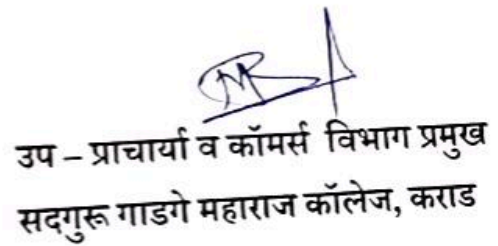 उप – प्राचार्या व कॉमर्स विभाग प्रमुख
सदगुरू गाडगे महाराज कॉलेज, कराड